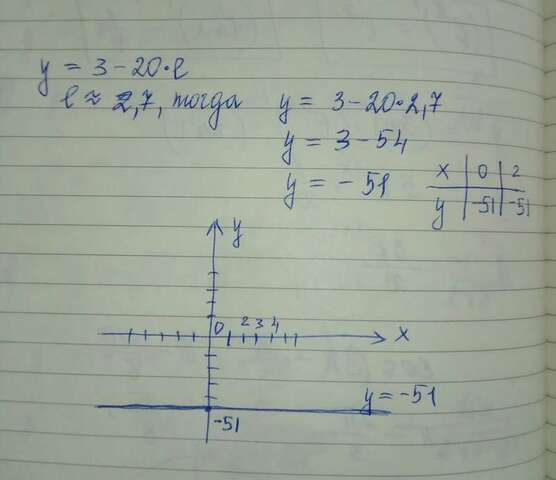 y = 3 - 20 • e
e ≈ 2,7, тогда y = 3 - 20 • 2,7
y = 3 - 54
y = - 51
x 0 2
y -51 -51
y
0 2 3 4 x
y = -51
-51